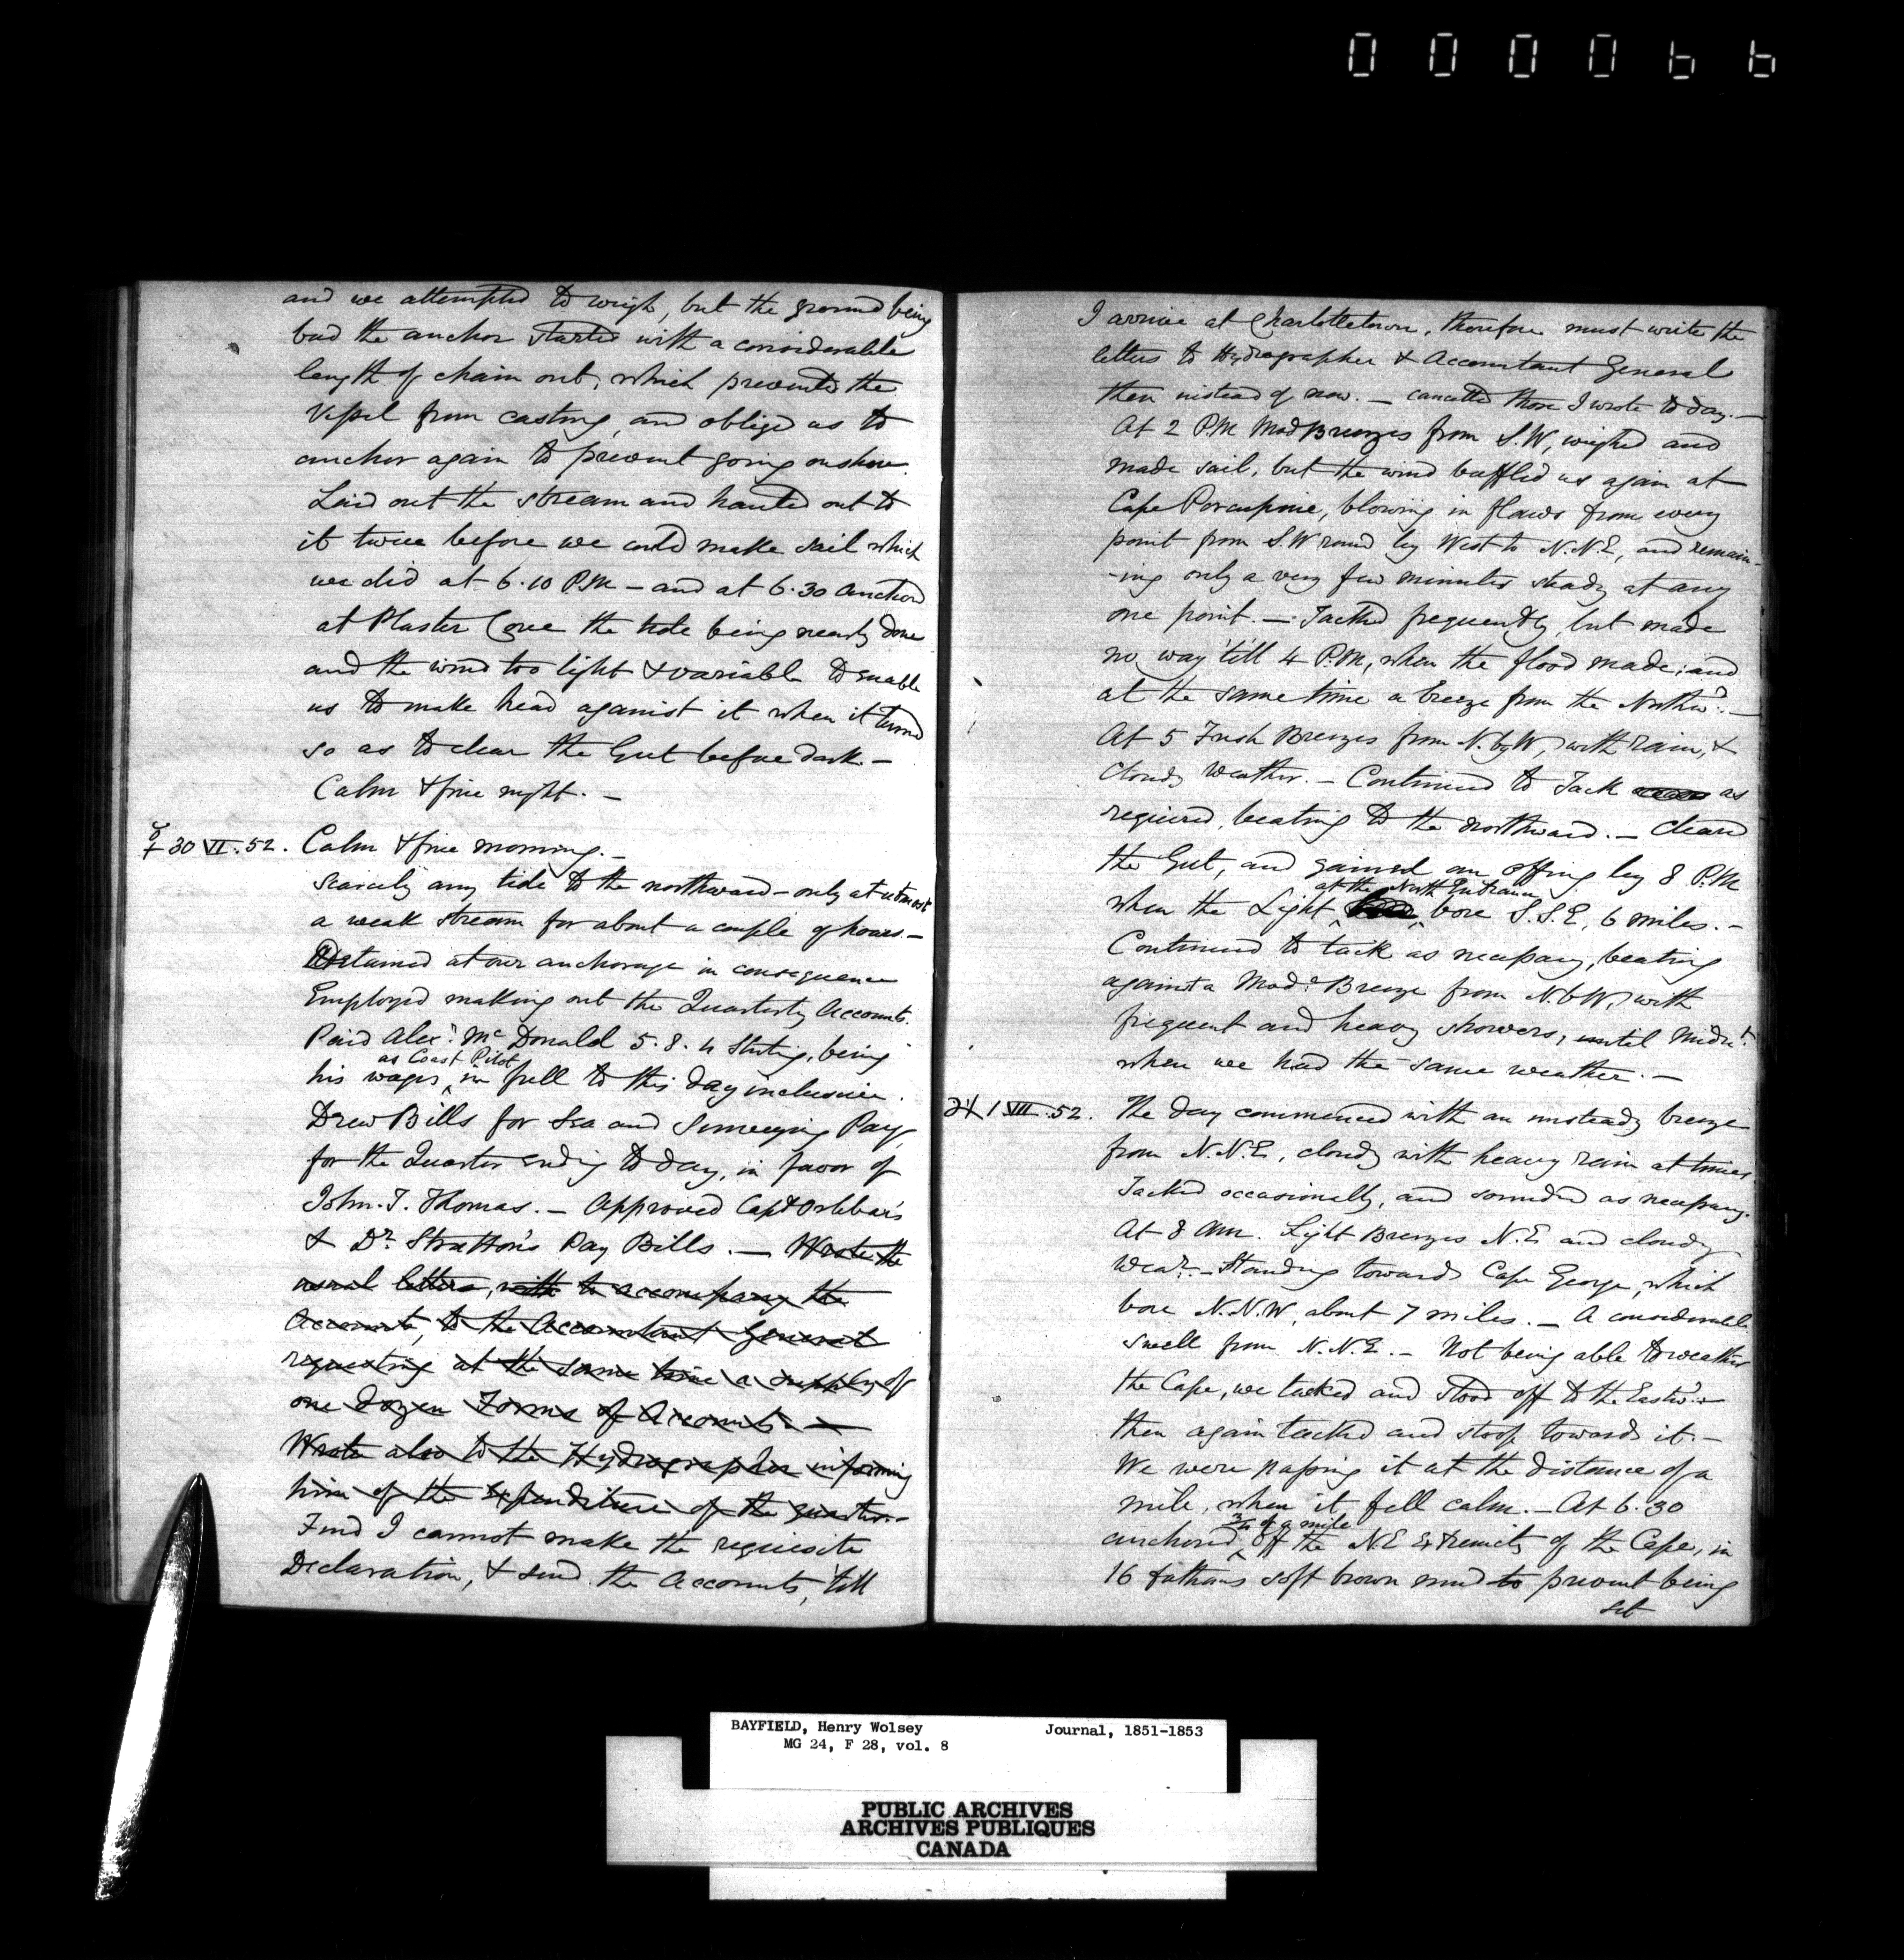 000066
and we attempted to weigh, but the ground being
bad the anchor started with a considerable
length of chain out, which prevented the
Vessel from casting, and obliged us to
anchor again to prevent going on shore.
Laid out the stream and hauled out to
it twice before we could make sail which
we did at 6.10 P.M – and at 6.30 anchored
at Plaster Cove the tide being nearly done
and the wind too light & variable to enable
us to make head against it when it turned
so as to clear the Gut before dark. –
Calm & fine night. –
☿ 30 VI. 52. Calm & fine morning. –
Scarcely any tide to the northward – only at utmost
a weak stream for about a couple of hours. –
Detained at our anchorage in consequence
Employed making out the Quarterly Accounts.
Paid Alexr. McDonald 5. 8. 4 Sterling, being
as Coast Pilot
his wages in full to this day inclusive.
Drew Bills for Sea and Surveying Pay,
for the Quarter ending to day, in favor of
John. T. Thomas. – Approved Capt Orlebar's
& Dr. Stratton's Pay Bills. – Wrote the
usual letters, with to accompany the
Accounts, to the Accountant General
requesting at the same time a supply of
one dozen Forms of Accounts. –
Wrote also to the Hydrographer informing
him of the Expenditure of the quarter. –
Find I cannot make the requisite
Declaration, & send the Accounts, till
I arrive at Charlottetown, therefore must write the
letters to Hydrographer & Accountant General
then instead of now. – cancelled those I wrote to day. –
At 2 P.M Mod Breezes from S.W, weighed and
made sail, but the wind baffled us again at
Cape Porcupine, blowing in flaws from every
point from S.W round by West to N.N.E, and remain-
-ing only a very few minutes steady at any
one point. – Tacked frequently, but made
no way 'till 4 P.M, when the flood made; and
at the same time a breeze from the Northwd. –
At 5 Fresh Breezes from N.byW, with rain, &
cloudy weather. – Continued to Tack as
required, beating to the northward. – Cleared
the Gut, and gained an offing by 8 P.M
at the North Entrance
when the Light bore S.S.E, 6 miles. –
Continued to tack as necessary, beating
against a Modt. Breeze from N.b.W, with
frequent and heavy showers, until Midnt.
when we had the same weather. –
♃ 1 VII. 52. The day commenced with an unsteady breeze
from N.N.E, cloudy with heavy rain at times.
Tacked occasionally, and sounded as necessary.
At 8 AM. Light Breezes N.E and cloudy
Wear. – Standing towards Cape George, which
bore N.N.W, about 7 miles. – A considerable
swell from N.N.E. – Not being able to weather
the Cape, we tacked and stood off to the Eastwd. –
then again tacked and stood towards it. –
We were passing it at the distance of a
mile, when it fell calm. – At 6.30
3/4 of a mile
anchored off the N.E Extremity of the Cape, in
16 fathoms soft brown mud to prevent being
set
BAYFIELD, Henry Wolsey Journal, 1851-1853
MG 24, F 28, vol. 8
PUBLIC ARCHIVES
ARCHIVES PUBLIQUES
CANADA